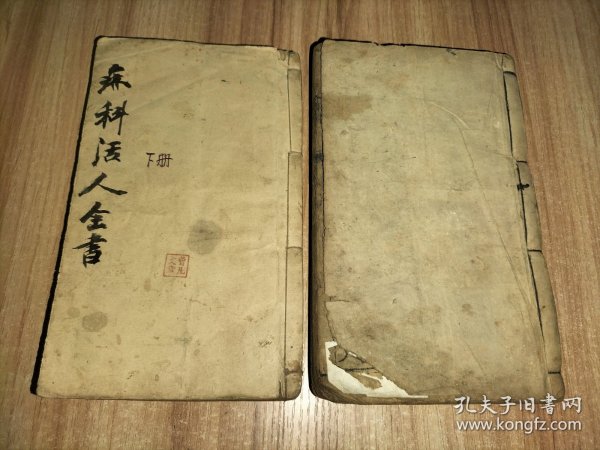 麻科活人全書
下册
孔夫子旧書网
www.kongfz.com